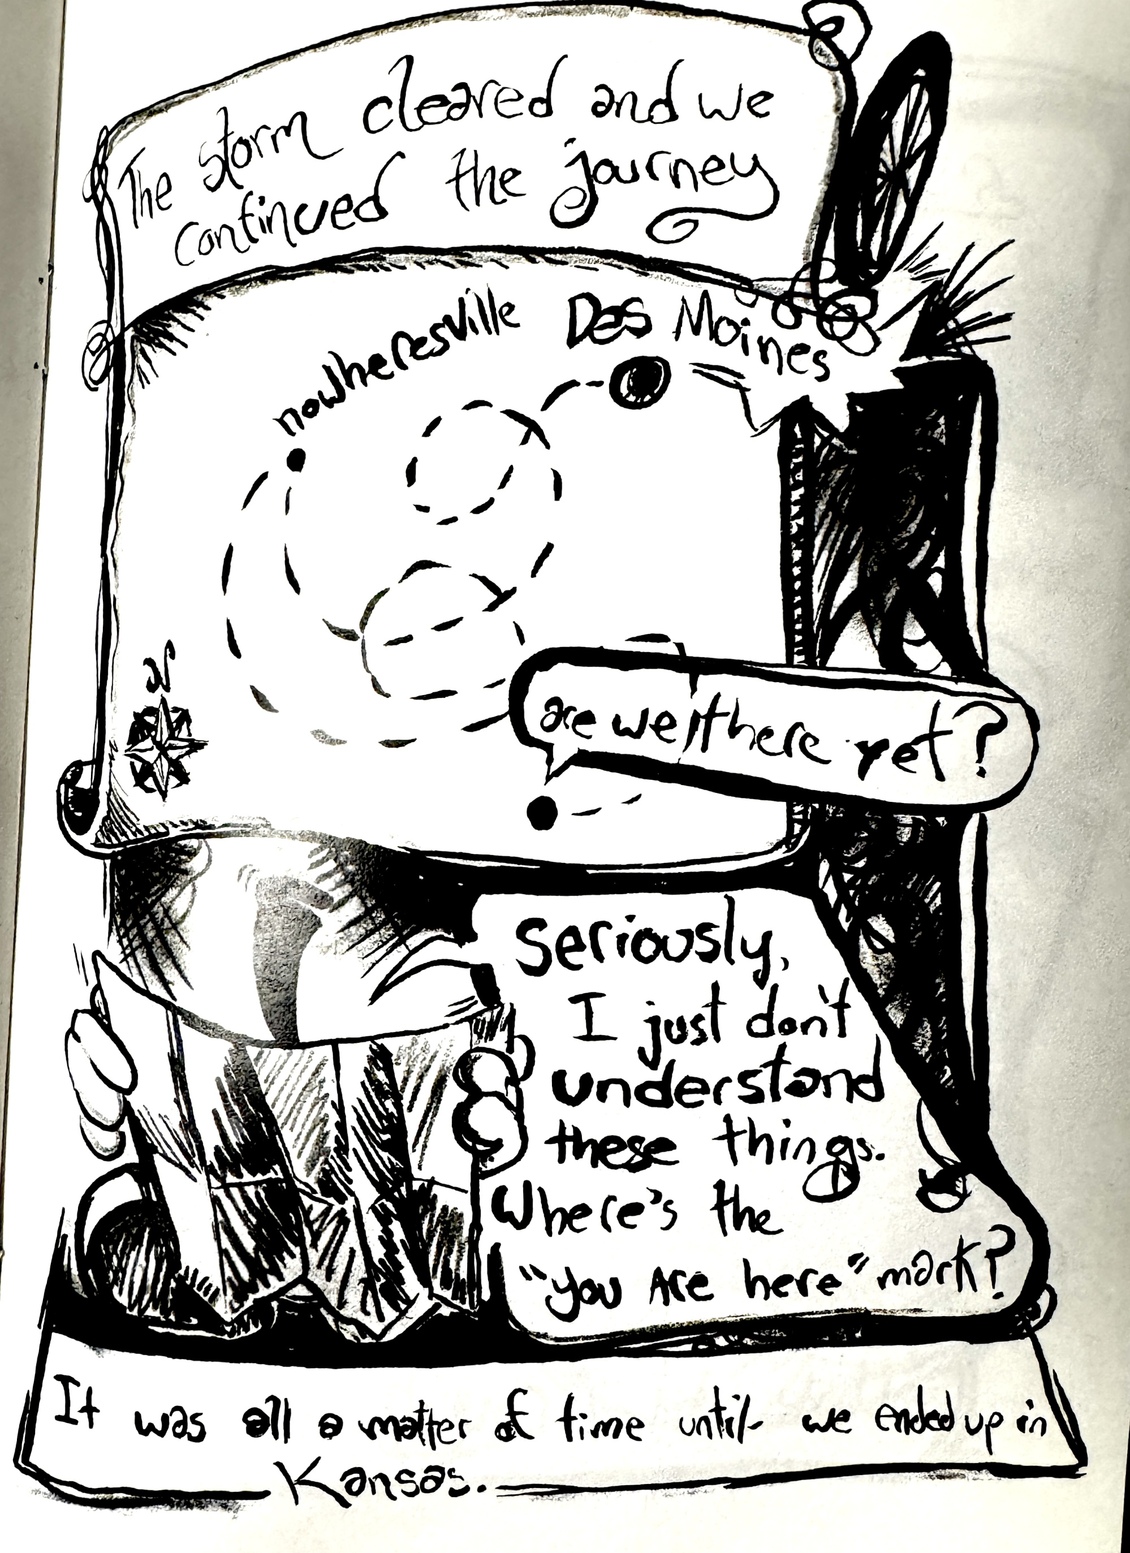 The storm cleared and we
continued the journey
nowheresville
Des Moines
N
are we there yet?
Seriously,
I just don't
understand
these things.
Where's the
"you Are here" mark?
It was all a matter of time until we ended up in
Kansas.